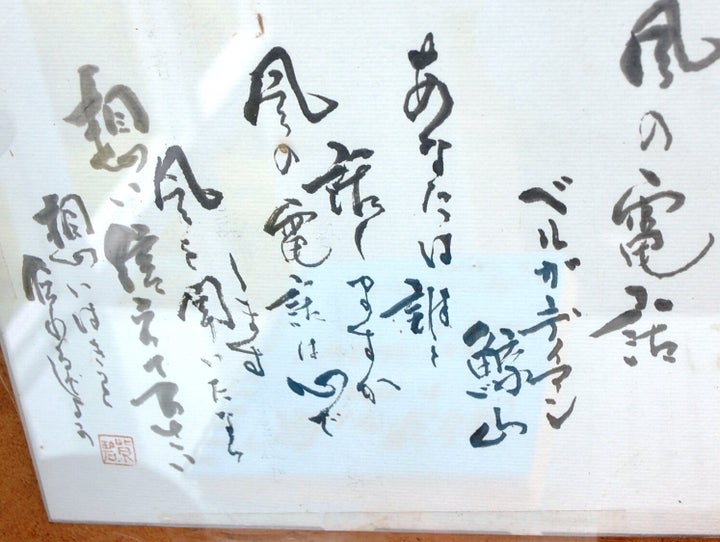 風の電話
ベルガディアン
鯨山
あなたは誰と
話しますか
風の電話は心で
します
風を聞いたなら
想い伝えて下さい
想いは